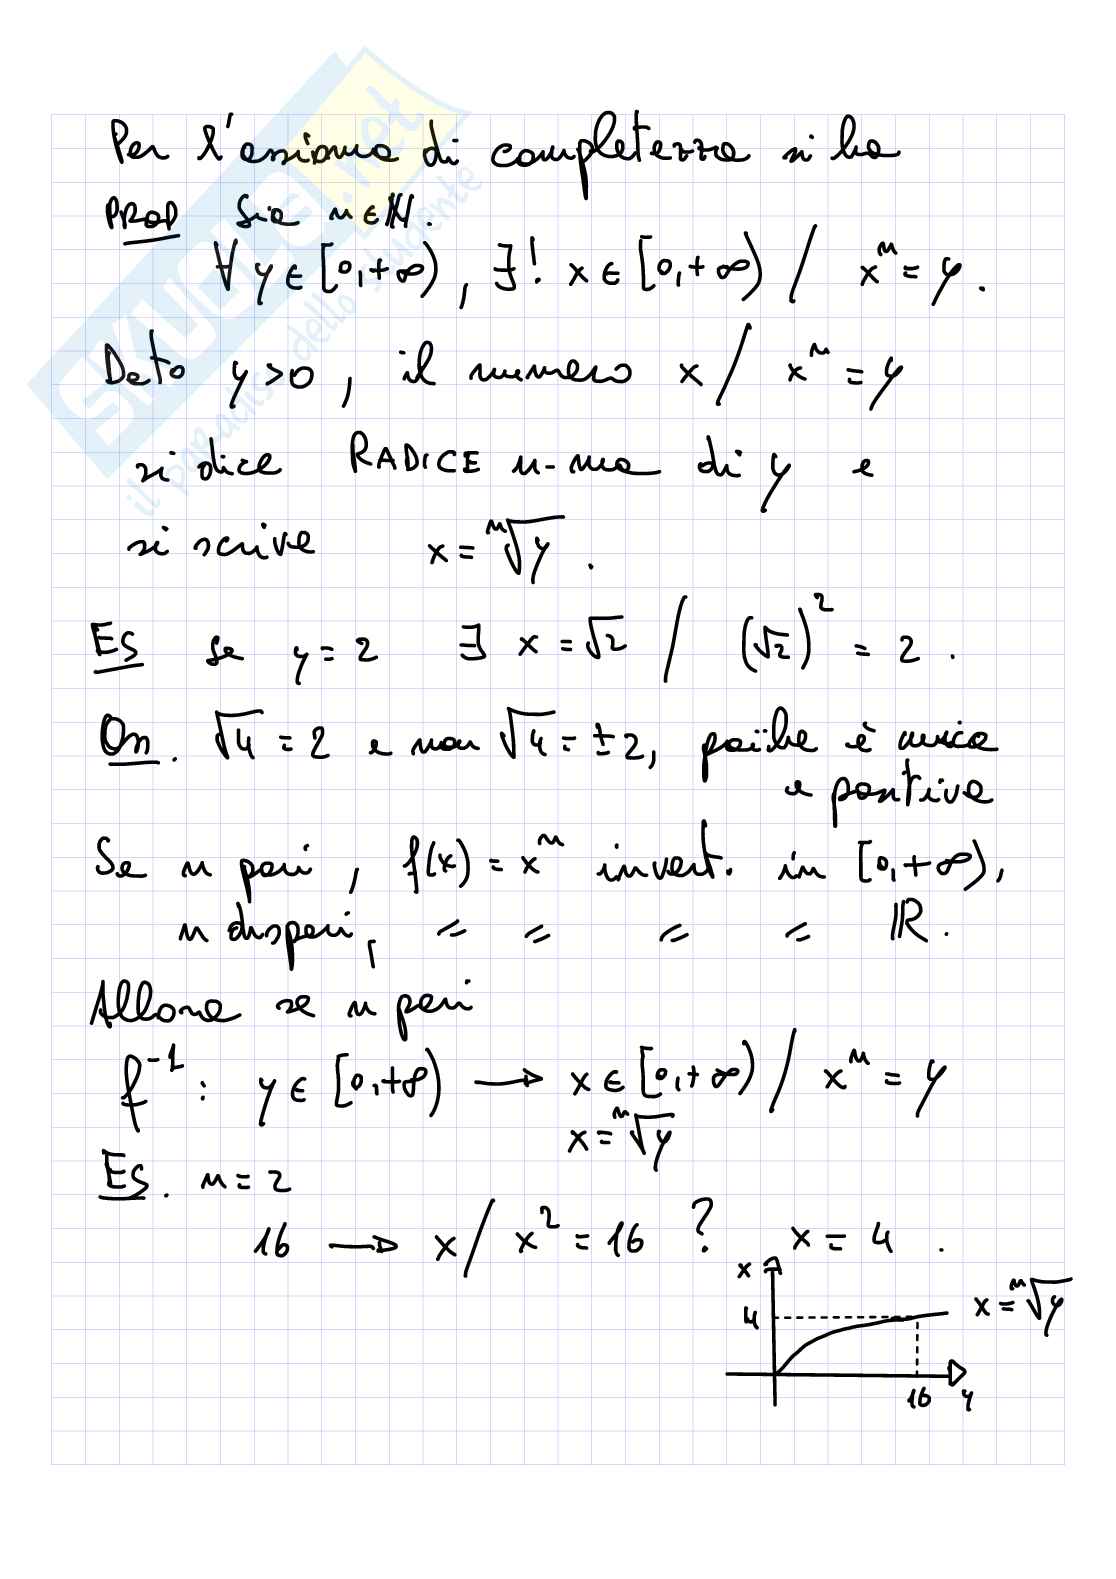 Per l'assioma di completezza si ha
PROP Sia n ∈ ℕ.
∀ y ∈ [0,+∞), ∃! x ∈ [0,+∞) / xⁿ = y.
Dato y>0, il numero x / xⁿ = y
si dice RADICE n-ma di y e
si scrive x = ⁿ√y.
Es se y = 2 ∃ x = √2 / (√2)² = 2.
Oss. √4 = 2 e non √4 = ±2, poiché è unica
e positiva
Se n pari, f(x) = xⁿ invert. in [0,+∞),
n dispari, " " " " ℝ.
Allora se n pari
f⁻¹ : y ∈ [0,+∞) → x ∈ [0,+∞) / xⁿ = y
x = ⁿ√y
Es. n = 2
16 → x / x² = 16 ? x = 4.
x
4
x = ⁿ√y
16 y
SKUOLA.net
il paradiso dello studente